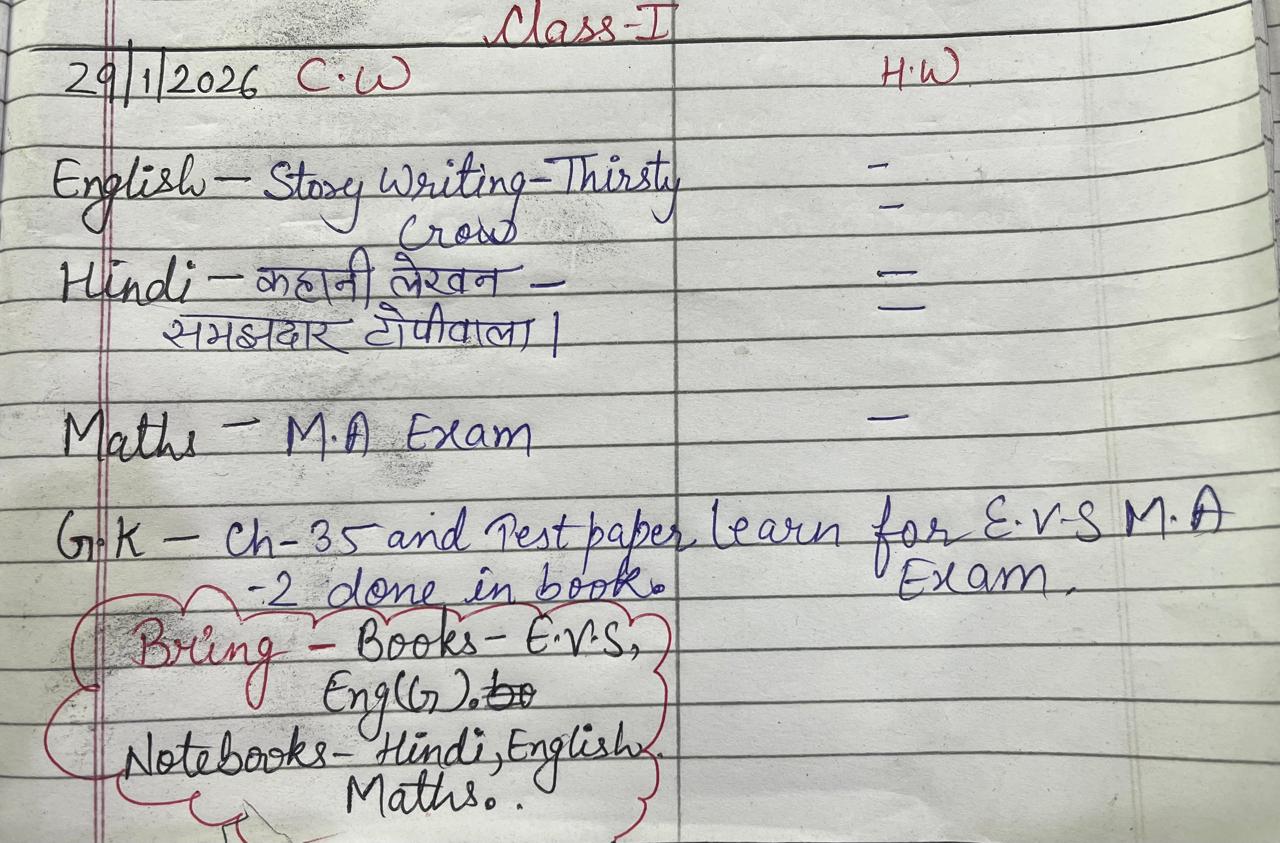 Class-I
29/1/2026 C.W H.W
English - Story Writing-Thirsty -
Crow -
Hindi - कहानी लेखन - -
समझदार टोपीवाला। -
Maths - M.A Exam -
G.K - Ch-35 and Test paper learn for E.V.S M.A
-2 done in book. Exam.
Bring - Books - E.V.S,
Eng(G).
Notebooks- Hindi, English,
Maths..